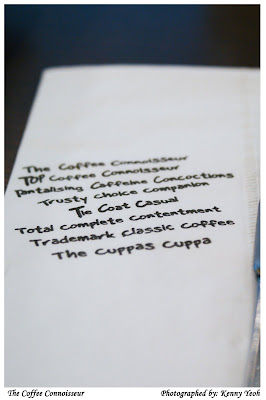 The Coffee Connoisseur
TOP Coffee Connoisseur
Tantalising Caffeine Concoctions
Trusty choice companion
Tie Coat Casual
Total complete contentment
Trademark classic coffee
The cuppas cuppa
The Coffee Connoisseur
Photographed by: Kenny Yeoh